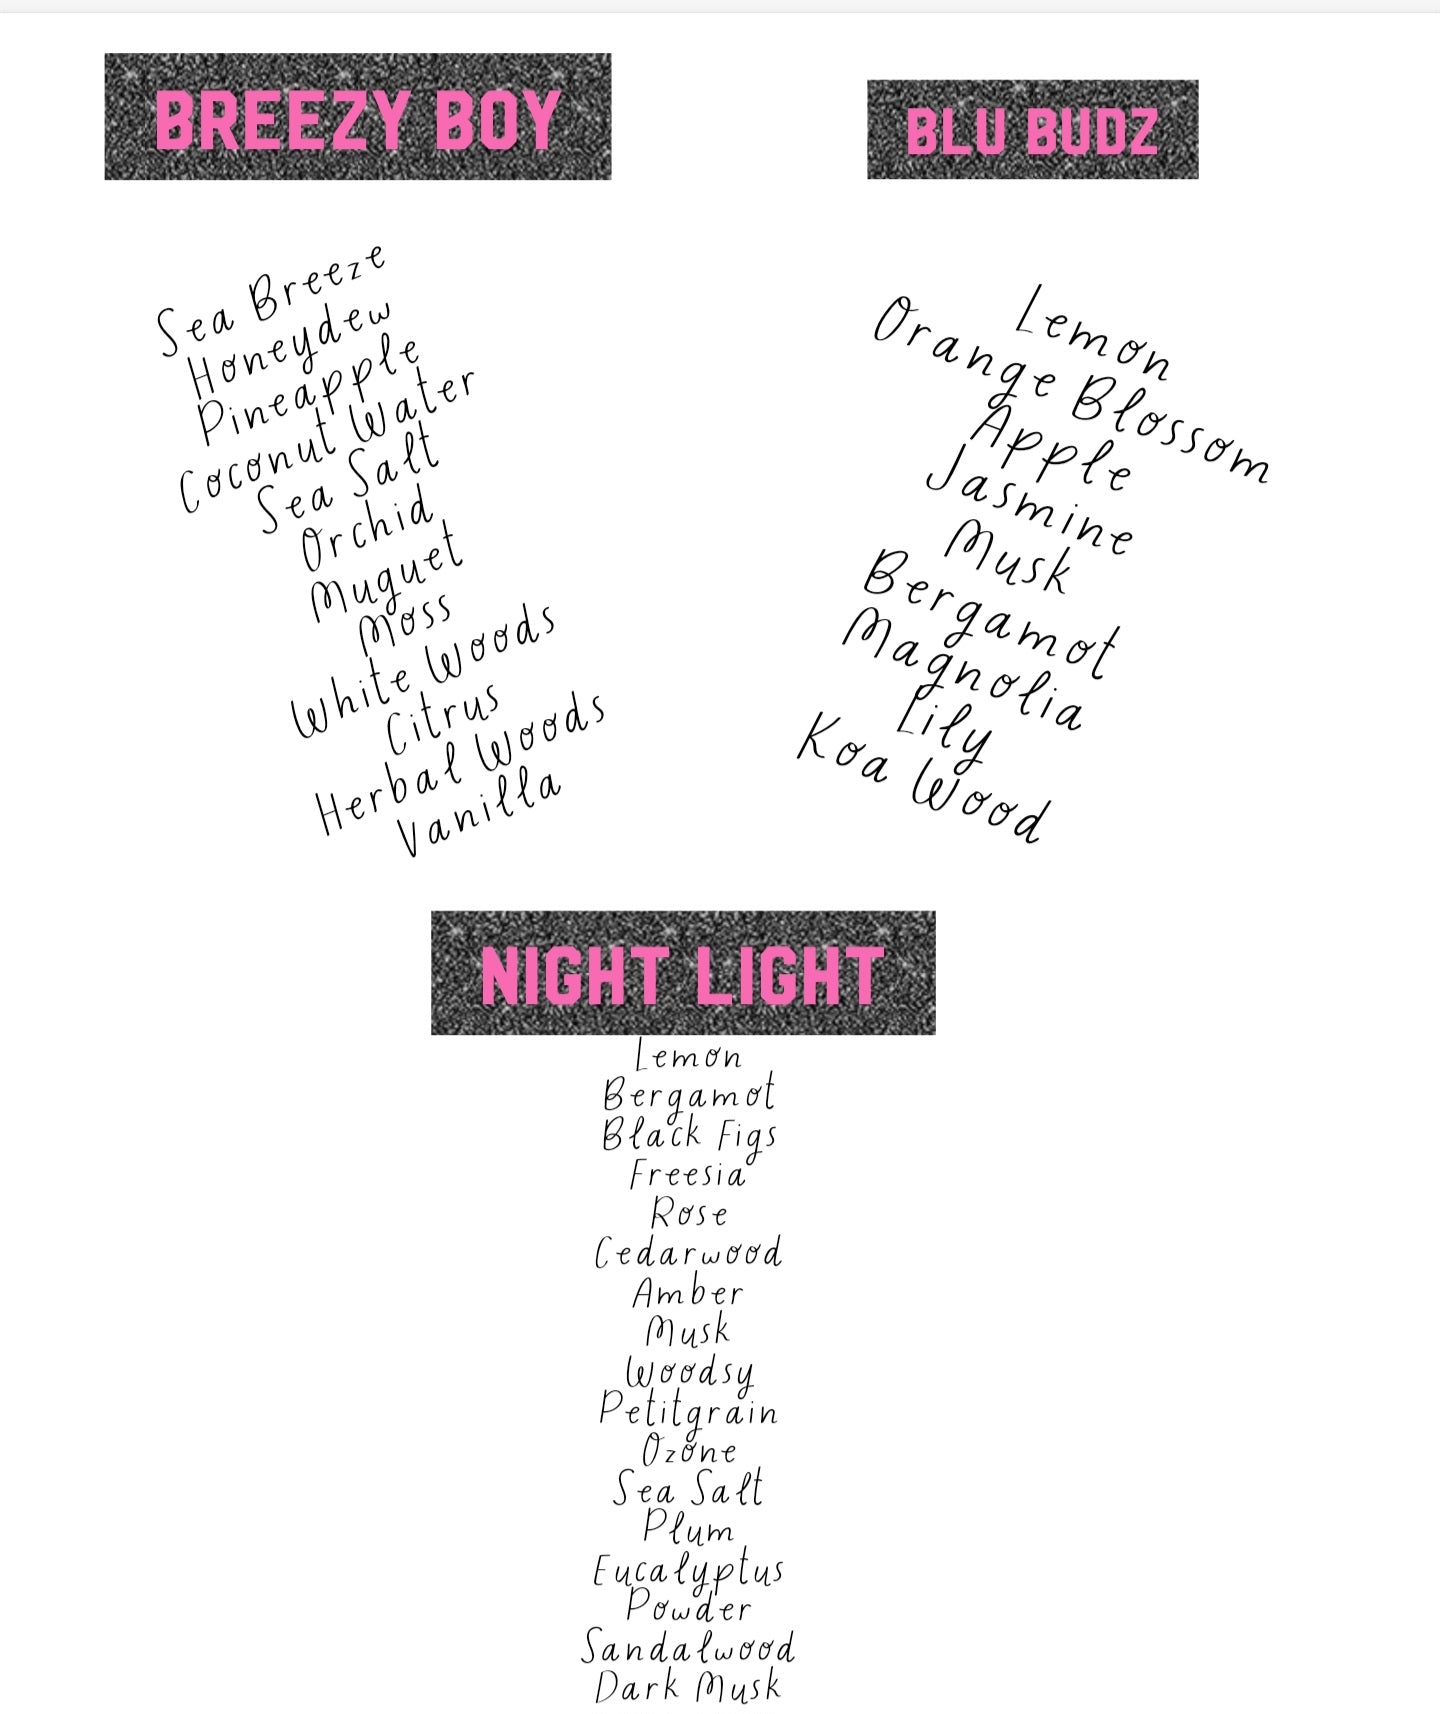 BREEZY BOY
Sea Breeze
Honeydew
Pineapple
Coconut Water
Sea Salt
Orchid
Muguet
Moss
White Woods
Citrus
Herbal Woods
Vanilla
BLU BUDZ
Lemon
Orange Blossom
Apple
Jasmine
Musk
Bergamot
Magnolia
Lily
Koa Wood
NIGHT LIGHT
Lemon
Bergamot
Black Figs
Freesia
Rose
Cedarwood
Amber
Musk
Woodsy
Petitgrain
Ozone
Sea Salt
Plum
Eucalyptus
Powder
Sandalwood
Dark Musk